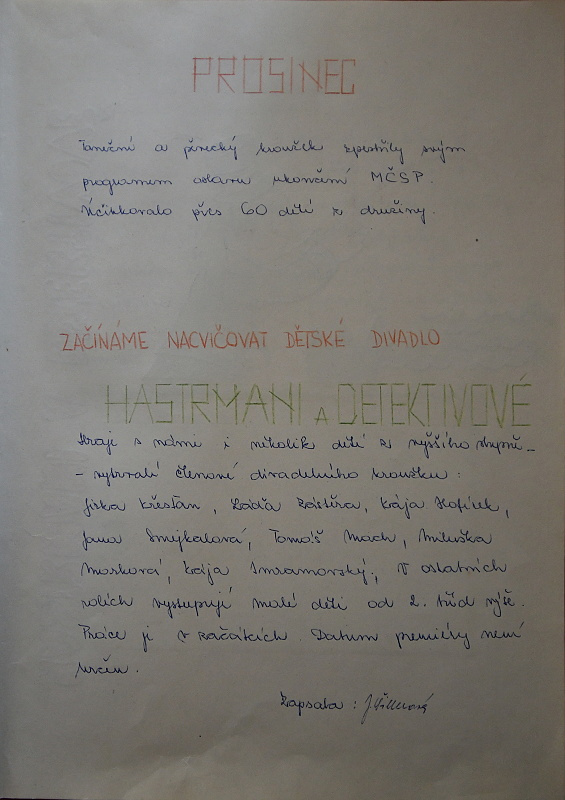 PROSINEC
Taneční a pěvecký kroužek zpestřily svým
programem oslavu ukončení MČSP.
Účinkovalo přes 60 dětí z družiny.
ZAČÍNÁME NACVIČOVAT DĚTSKÉ DIVADLO
HASTRMANI A DETEKTIVOVÉ
Hrají s námi i několik dětí z vyššího stupně -
- vytrvalí členové divadelního kroužku :
Jirka Křesťan, Láďa Zástěra, Kája Hofírek,
Jana Smejkalová, Tomáš Mach, Miluška
Morková, Kája Smramovský, V ostatních
rolích vystupují malé děti od 2. tříd výše.
Práce je v začátcích. Datum premiéry není
určen.
Zapsala :